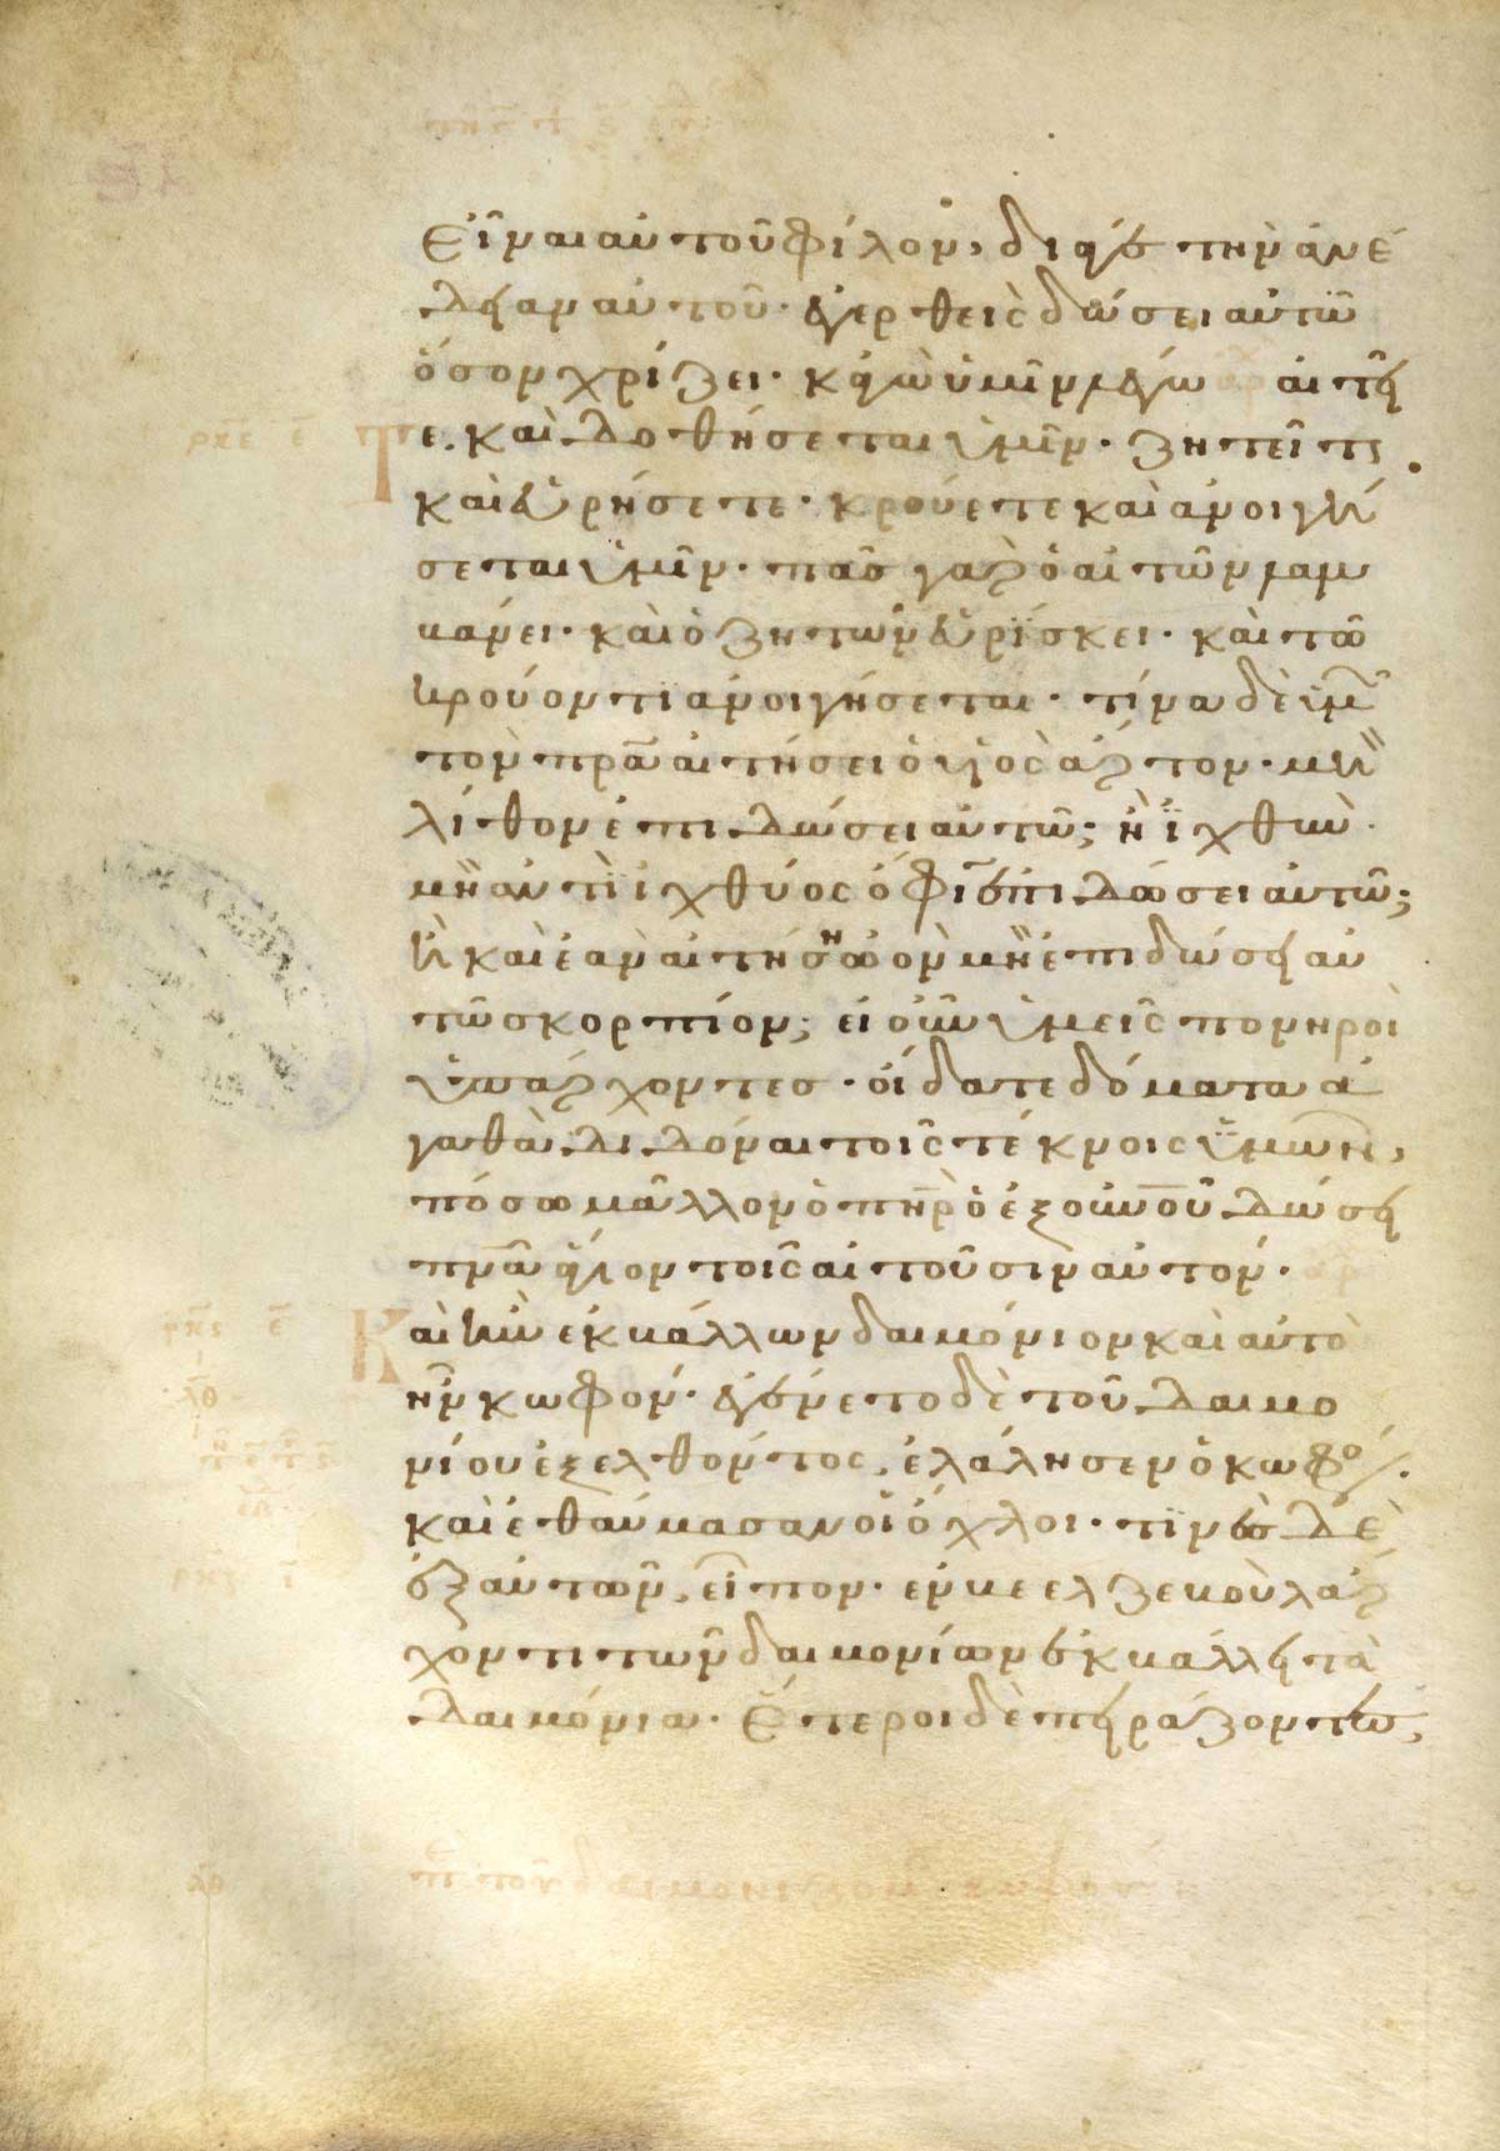 εἶναι αὐτοῦ φίλον, διά γε τὴν ἀναί
δειαν αὐτοῦ· ἐγερθεὶς δώσει αὐτῶ
ὅσον χρίζει· κἀγὼ ὑμῖν λέγω αἰτεῖ
τε. καὶ δοθήσεται ὑμῖν· ζητεῖτε
καὶ εὑρήσετε· κρούετε καὶ ἀνοιγή
σεται ὑμῖν· πᾶς γὰρ ὁ αἰτῶν λαμ
βάνει· καὶ ὁ ζητῶν εὑρίσκει· καὶ τῶ
κρούοντι ἀνοιγήσεται· τίνα δὲ ὑμῶν
τὸν πρᾶ αἰτήσει ὁ υἱὸς ἄρτον· μὴ
λίθον ἐπιδώσει αὐτῶ; ἢ ἰχθὺν·
μὴ ἀντὶ ἰχθύος ὄφιν ἐπιδώσει αὐτῶ;
ἢ καὶ ἐὰν αἰτήση ὠὸν μὴ ἐπιδώσει αὐ
τῶ σκορπίον; εἰ οὖν ὑμεῖς πονηροὶ
ὑπάρχοντες· οἴδατε δόματα ἀ
γαθὰ διδόναι τοῖς τέκνοις ὑμῶν,
πόσω μᾶλλον ὁ πηρ ὁ ἐξ οὐνοῦ δώσει
πνα ἅγιον τοῖς αἰτοῦσιν αὐτόν·
Καὶ ἦν ἐκβάλλων δαιμόνιον καὶ αὐτὸ
ἦν κωφόν· ἐγένετο δὲ τοῦ δαιμο
νίου ἐξελθόντος, ἐλάλησεν ὁ κωφός.
καὶ ἐθαύμασαν οἱ ὄχλοι· τινὲς δὲ
ἐξ αὐτῶν, εἶπον· ἐν βεελζεβοὺλ ἄρ
χοντι τῶν δαιμονίων ἐκβάλλει τὰ
δαιμόνια· ἕτεροι δὲ πειράζοντες,